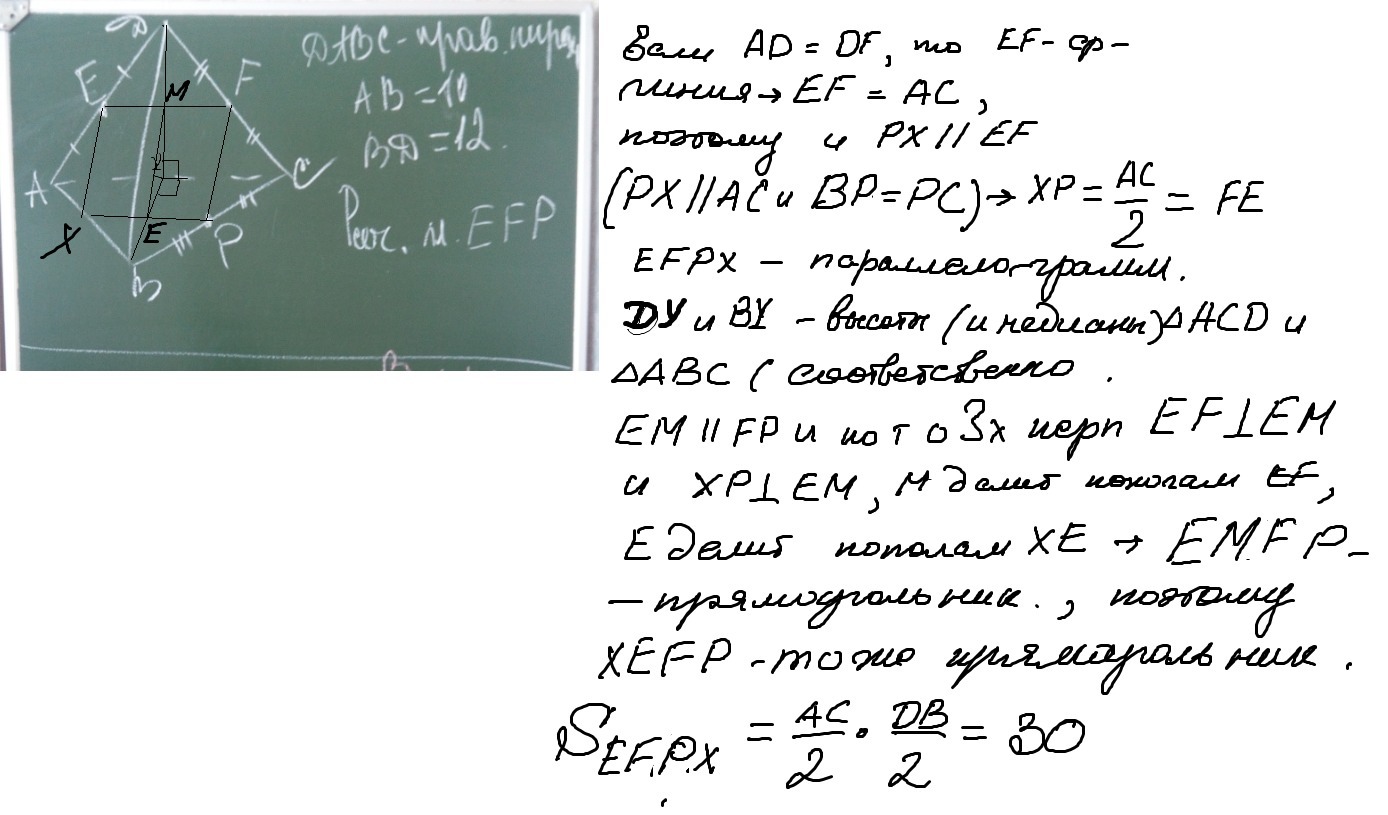 D
E
F
M
A
C
X
E
P
B
DABC - прав. пирам
AB = 10
BD = 12.
Рас. м. EFP
Если AD = DF, то EF - ср -
линия → EF = AC,
поэтому и PX // EF
(PX // AC и BP = PC) → XP = AC/2 = FE
EFPX - параллелограмм.
DY и BY - высоты (и медианы) △ACD и
△ABC ( соответственно .
EM || FP и по т о 3х перп EF⊥EM
и XP⊥EM, M делит пополам EF,
E делит пополам XE → EMFP -
- прямоугольник . , поэтому
XEFP - тоже прямоугольник .
S EFPX = AC/2 · DB/2 = 30